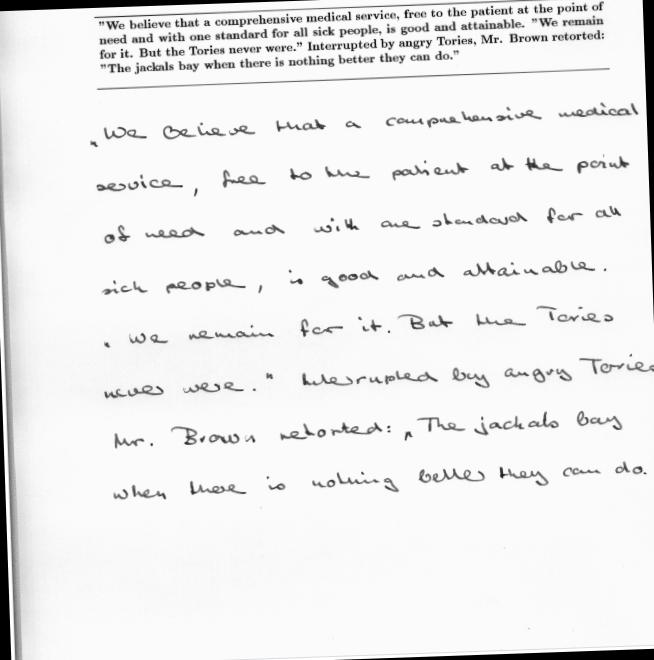 "We believe that a comprehensive medical service, free to the patient at the point of
need and with one standard for all sick people, is good and attainable. "We remain
for it. But the Tories never were." Interrupted by angry Tories, Mr. Brown retorted:
"The jackals bay when there is nothing better they can do."
„We believe that a comprehensive medical
service, free to the patient at the point
of need and with one standard for all
sick people, is good and attainable.
„We remain for it. But the Tories
never were." Interrupted by angry Tories
Mr. Brown retorted: „The jackals bay
when there is nothing better they can do.